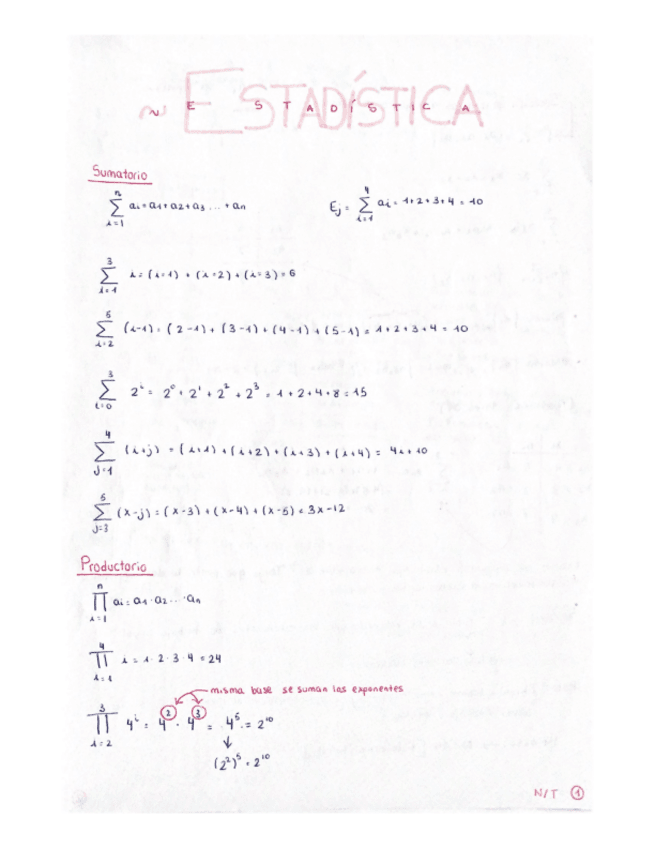 ~ ESTADÍSTICA
E S T A D Í S T I C A
Sumatorio
n
∑ ai = a1 + a2 + a3 ... + an
i=1
4
Ej = ∑ ai = 1+2+3+4 = 10
i=1
3
∑ i = (i=1) + (i=2) + (i=3) = 6
i=1
5
∑ (i-1) = (2-1) + (3-1) + (4-1) + (5-1) = 1+2+3+4 = 10
i=2
3
∑ 2^i = 2^0 + 2^1 + 2^2 + 2^3 = 1+2+4+8 = 15
i=0
4
∑ (i+j) = (i+1) + (i+2) + (i+3) + (i+4) = 4i+10
j=1
5
∑ (x-j) = (x-3) + (x-4) + (x-5) = 3x-12
j=3
Productorio
n
∏ ai = a1 · a2 ... · an
i=1
4
∏ i = 1·2·3·4 = 24
i=1
misma base se suman los exponentes
3
∏ 4^i = 4^2 · 4^3 = 4^5 = 2^10
i=2
↓
(2^2)^5 = 2^10
N/T 1